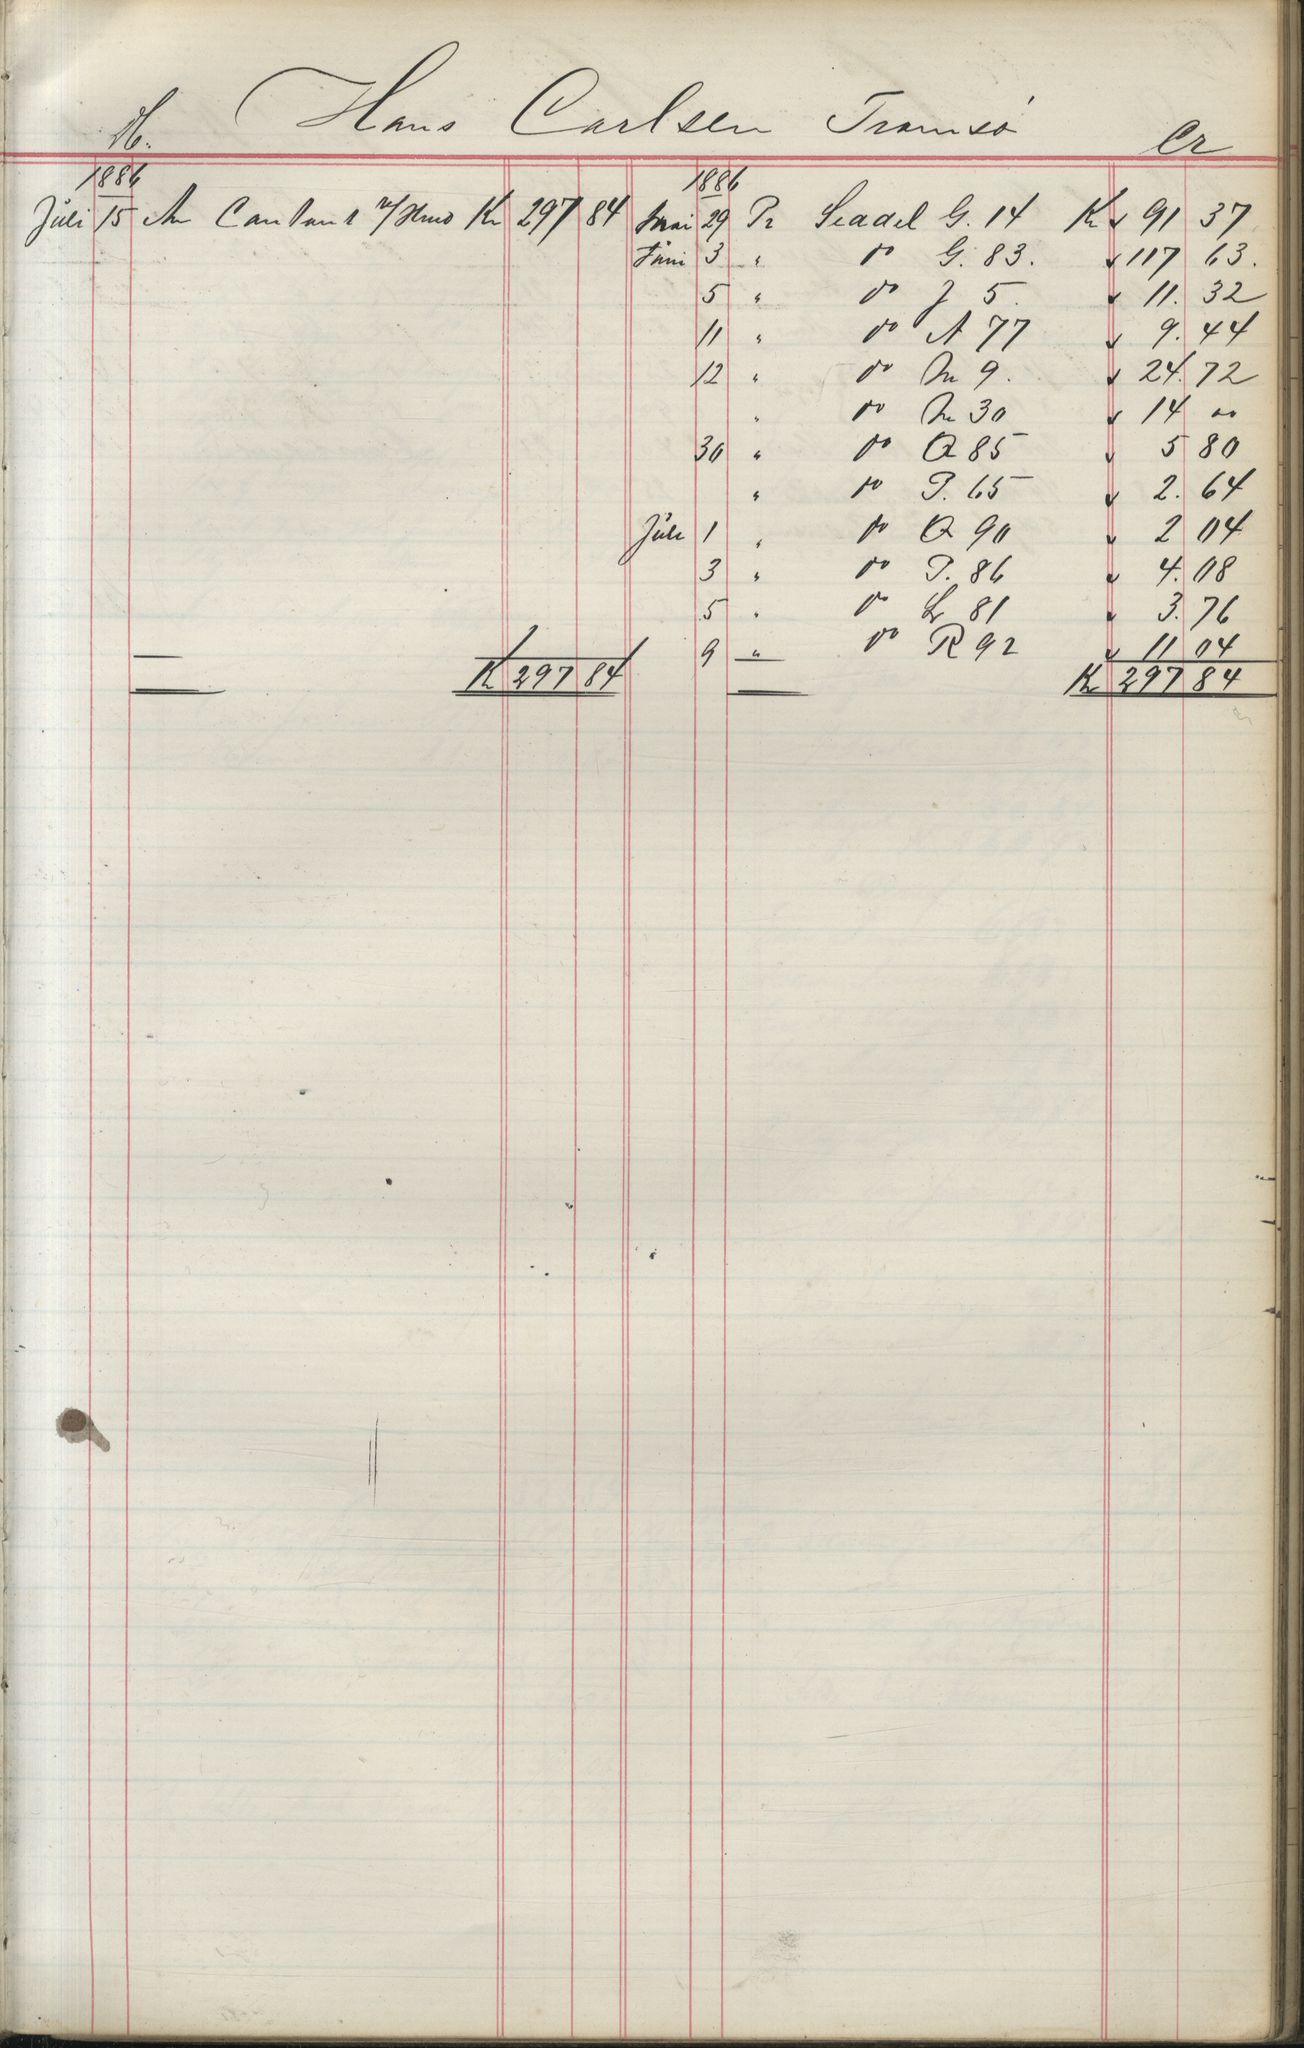 Hans Carlsen Tromsö
Dr. Cr
1886 1886
Juli 15 An Contant Kr 297 84 Mai 29 Pr Seddel G. 14 Kr 91 37
Juni 3 " do G. 83. 117 63.
5 " do J 5. 11. 32
11 " do A 77 9. 44
12 " do M 9. 24. 72
" do M 30 14 "
30 " do Q 85 5 80
" do P. 65 2. 64
Juli 1 " do Q 90 2 04
3 " do P. 86 4. 08
5 " do L 81 3. 76
9 " do R 92 11 04
Kr 297 84 Kr 297 84